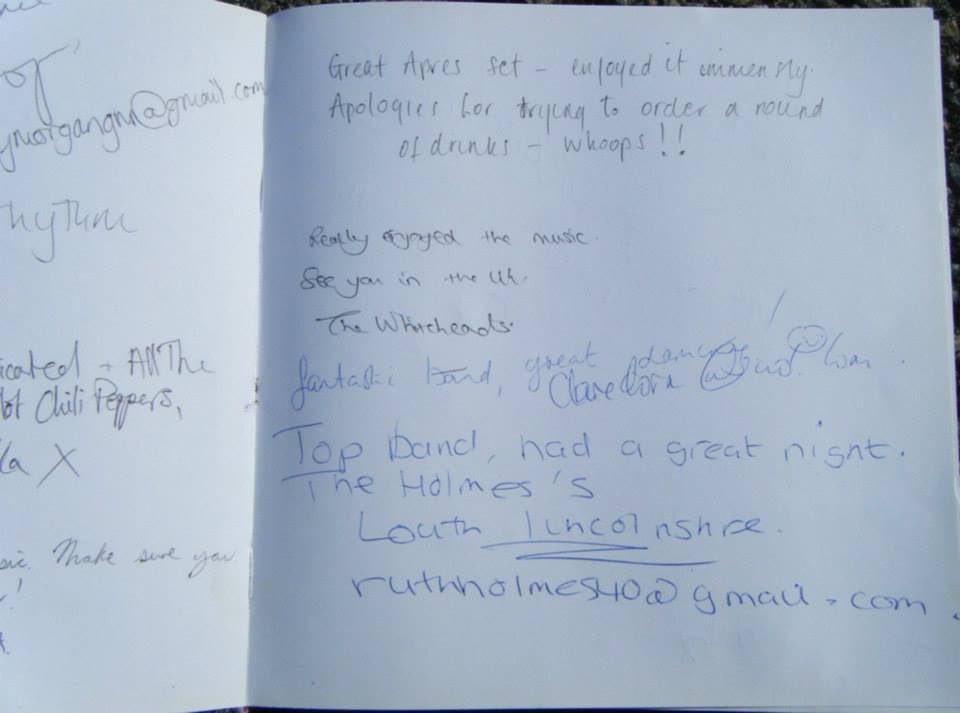 of
ymorgangnn@gmail.com
hythm
icated - All The
ot Chili Peppers,
la X
sic. Make sure you
Great Apres set - enjoyed it immensly.
Apologies for trying to order a round
of drinks - whoops!!
Really enjoyed the music.
See you in the UK.
The Whiteheads.
fantastic band, great
Top band, had a great night.
The Holmes's
Louth lincolnshire.
ruthholmes40@gmail.com